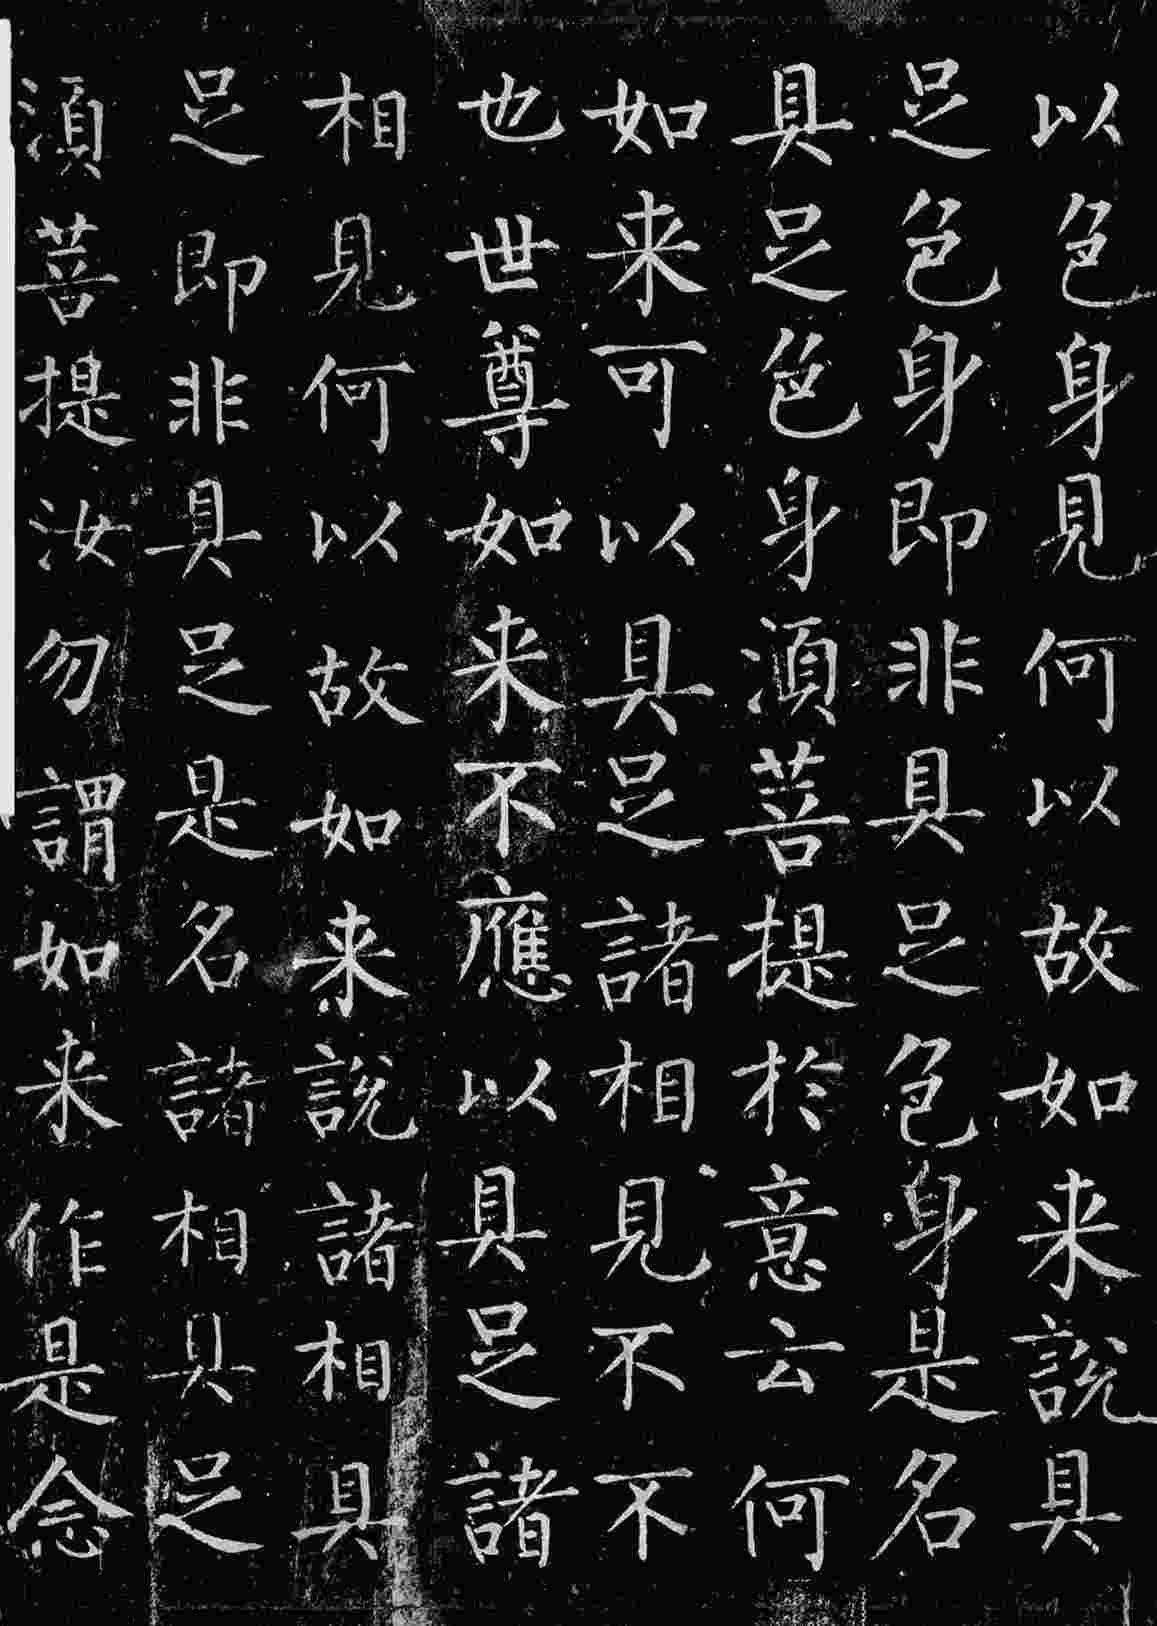 以色身見何以故如来說具
足色身即非具足色身是名
具足色身湏菩提於意云何
如来可以具足諸相見不不
也世尊如来不應以具足諸
相見何以故如来說諸相具
足即非具足是名諸相具足
湏菩提汝勿謂如来作是念